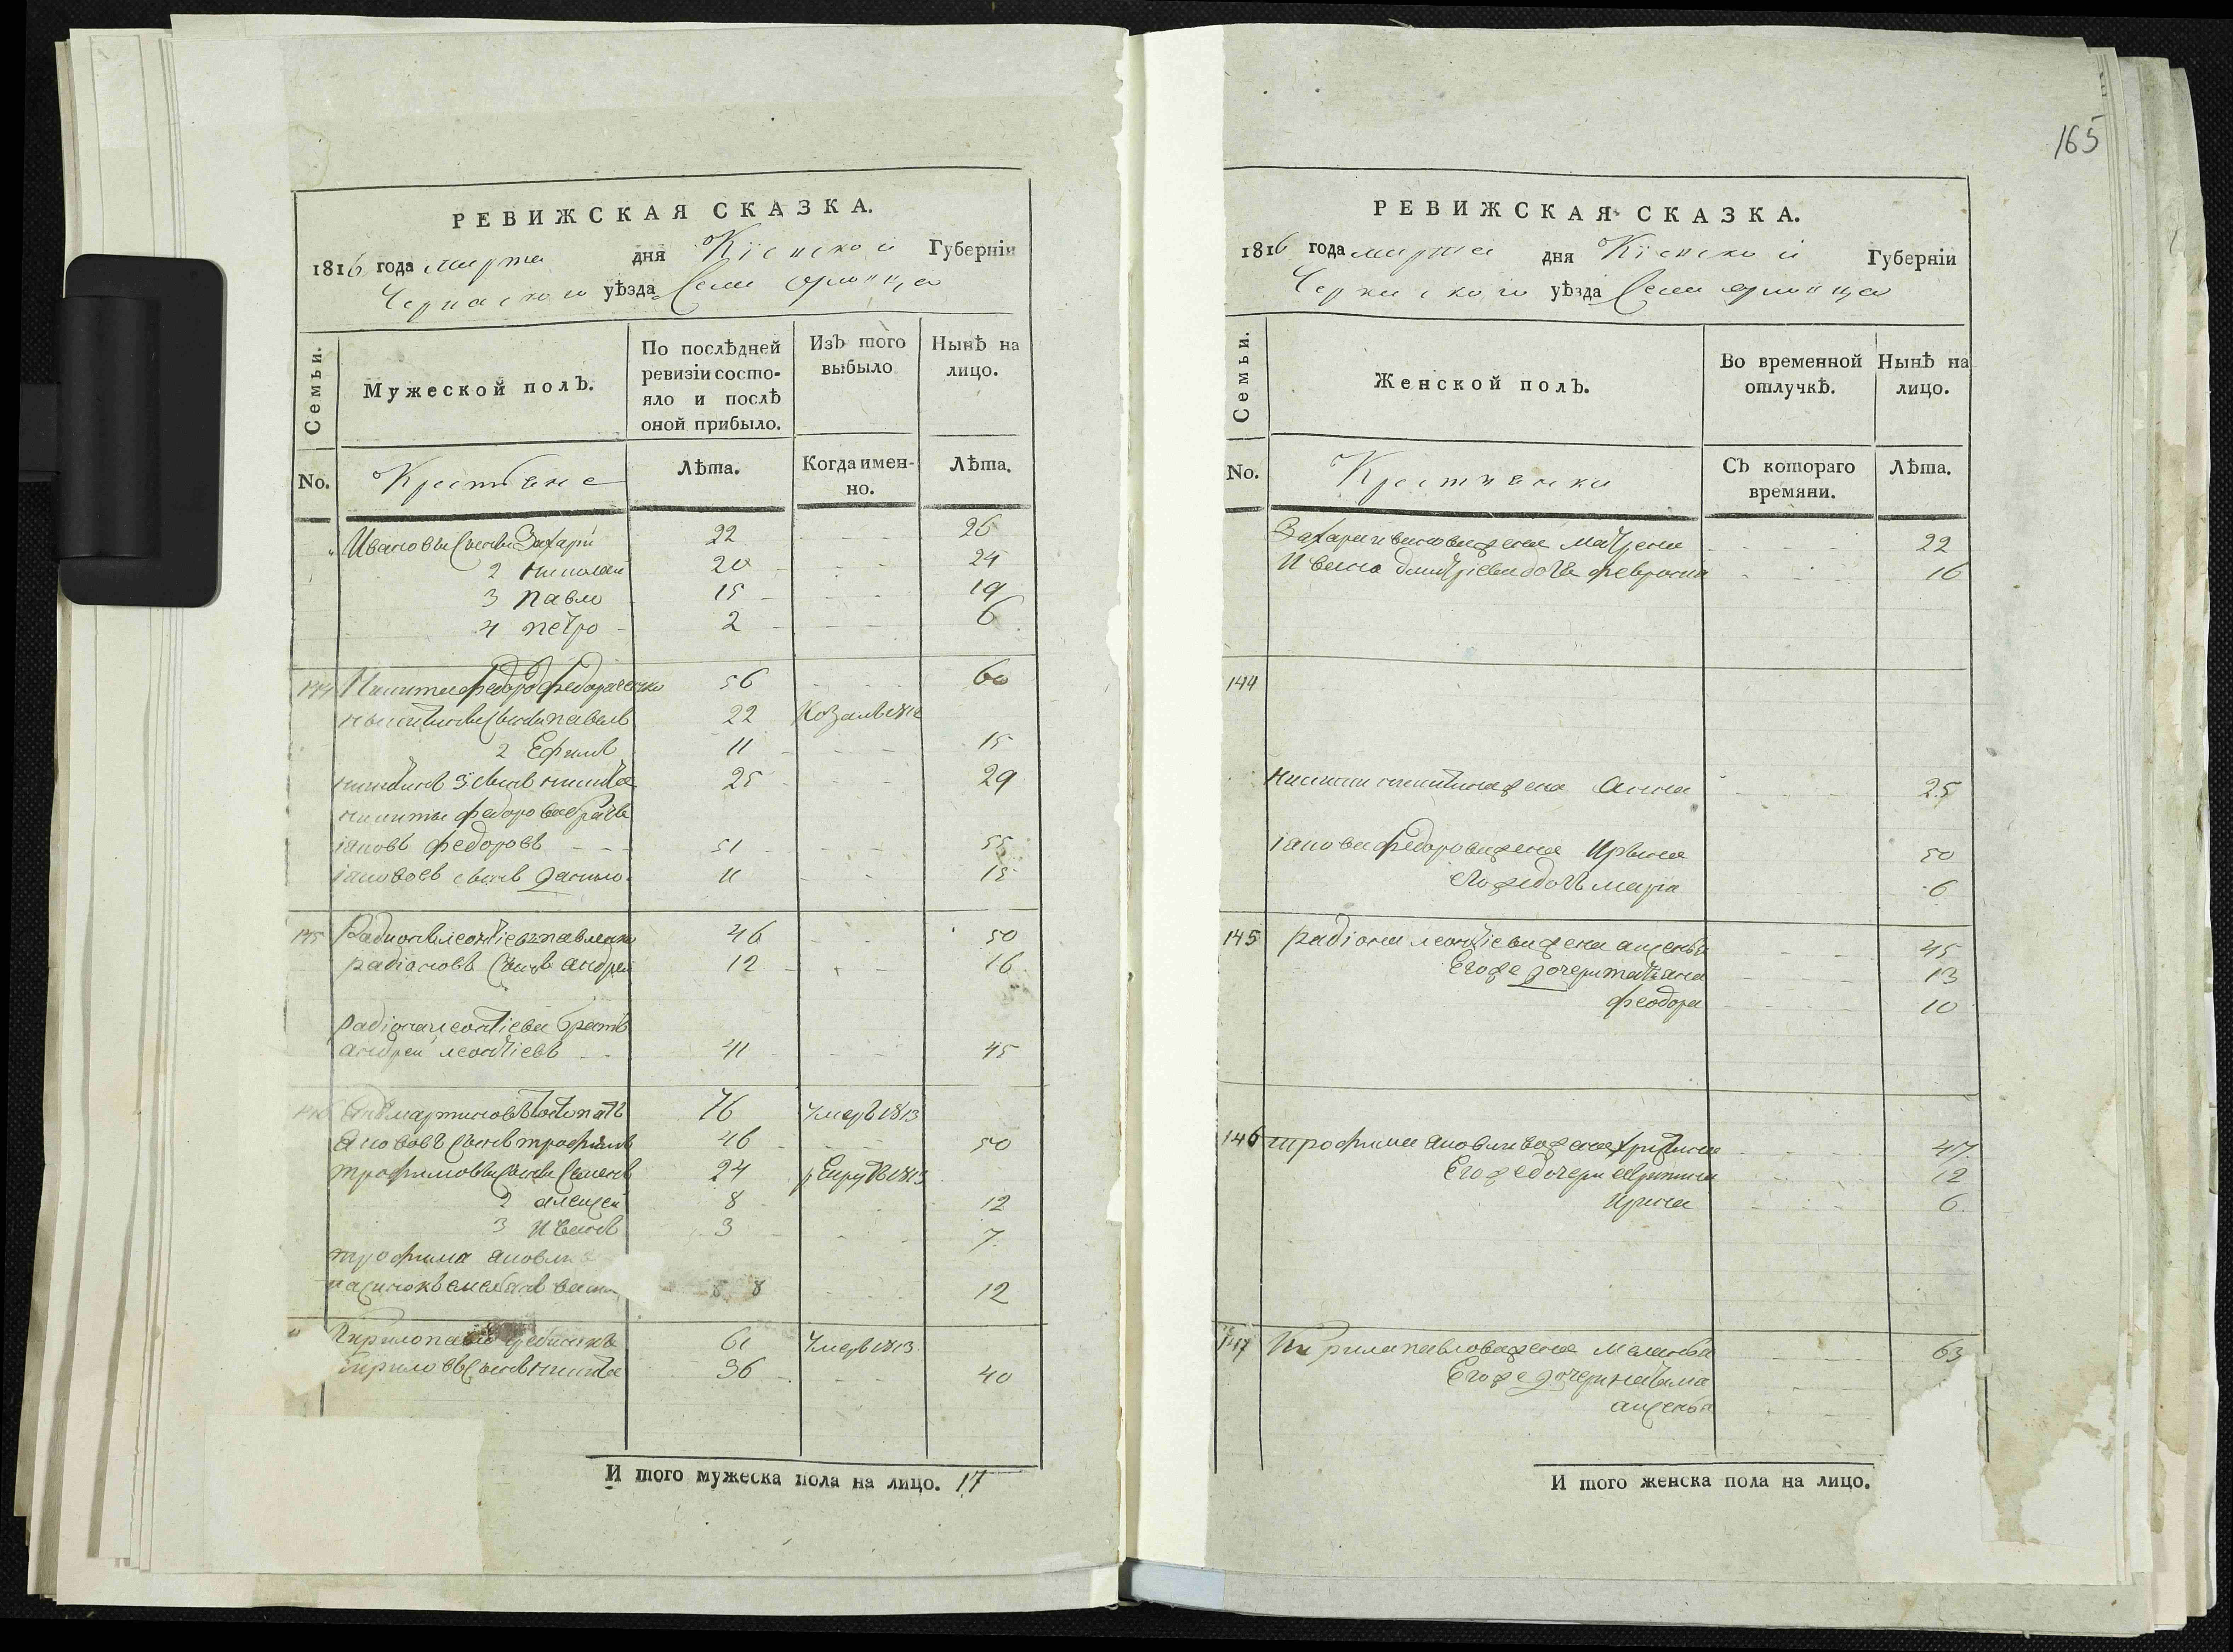 РЕВИЖСКАЯ СКАЗКА.
1816 года марта дня Кіевской Губерніи
Черкаского уѣзда Села
Семьи.
Мужеской полъ.
По послѣдней ревизіи состояло и послѣ оной прибыло.
Изъ того выбыло
Нынѣ на лицо.
No.
Крестьяне
Лѣта.
Когда именно.
Лѣта.
Ивановы сыновья Захарій 22 26
2 николай 20 24
3 павло 15 19
4 петро 2 6
144 Никита федоров 56 60
никитины сыновья павелъ 22 1812
2 Ефимъ 11 15
никитинъ 3 сынъ никита 25 29
никиты федорова братъ
іаковъ федоровъ 51 55
іаковъ сынъ данило 11 15
145 Радионъ леонтіевъ 46 50
радіоновъ сынъ андрей 12 16
радіона леонтіева братъ
андрей леонтіевъ 41 45
146 мартиновъ 76 умеръ 1813
сынъ трофимъ 46 50
трофимовы сыновья семенъ 24 рекрутъ 1813
2 алексей 8 12
3 Иванъ 3 7
трофима
пасинокъ 8 12
Кирило павло 61 умеръ 1813
Кириловъ сынъ никита 36 40
И того мужеска пола на лицо. 17
165
РЕВИЖСКАЯ СКАЗКА.
1816 года марта дня Кіевской Губерніи
Черкаского уѣзда Села
Семьи.
Женской полъ.
Во временной отлучкѣ.
Нынѣ на лицо.
No.
Крестьянки
Съ котораго времяни.
Лѣта.
Захарія иванова жена матрена 22
Ивана дмитріева дочь феврония 16
144
никиты никитина жена анна 25
іакова федорова жена Ирина 50
его же дочь марія 6
145 радіона леонтіева жена аксенья 45
Его же дочери татіана 13
феодора 10
146 трофима жена христина 47
Его же дочери 12
Ирина 6
147 Кирила павлова жена маланья 63
Его же дочери
аксенья
И того женска пола на лицо.